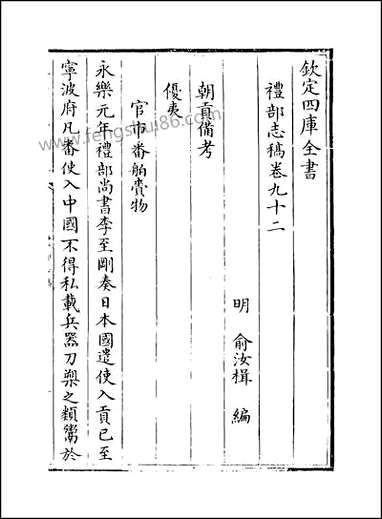 欽定四庫全書
禮部志稿卷九十二
明 俞汝楫 編
朝貢備考
優夷
官市番舶賷物
永樂元年禮部尚書李至剛奏日本國遣使入貢已至
寧波府凡番使入中國不得私載兵器刀槊之類鬻於
www.fengshui86.com